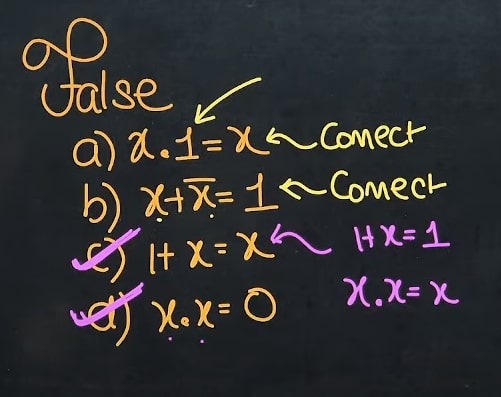 False
a) x.1=x Correct
b) x+x̅=1 Correct
c) 1+x=x 1+x=1
d) x.x=0 x.x=x